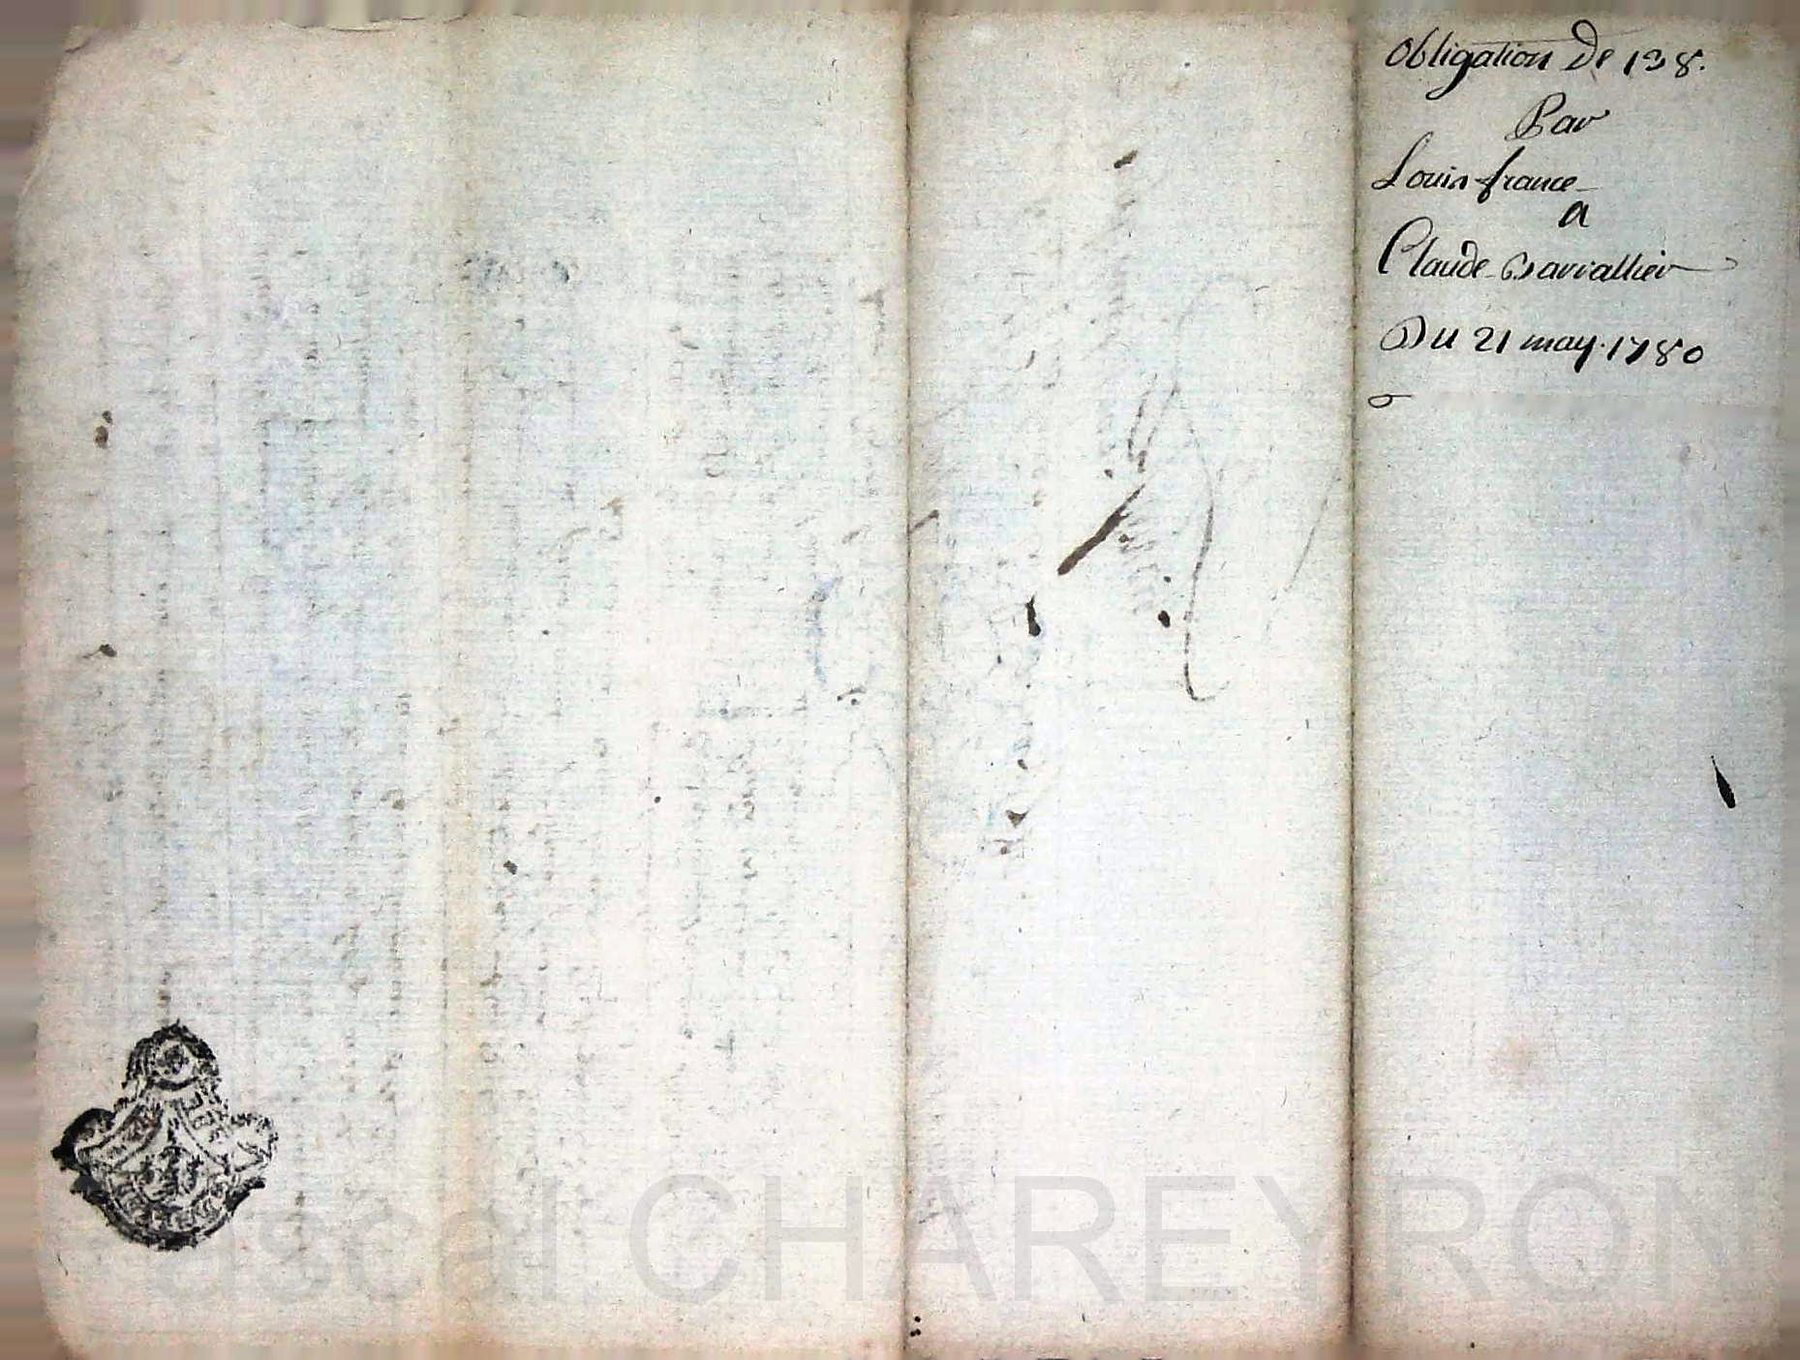 Obligation De 138.
Par
Louis france
a
Claude Barrallier
Du 21 may. 1780
ascal CHAREYRON